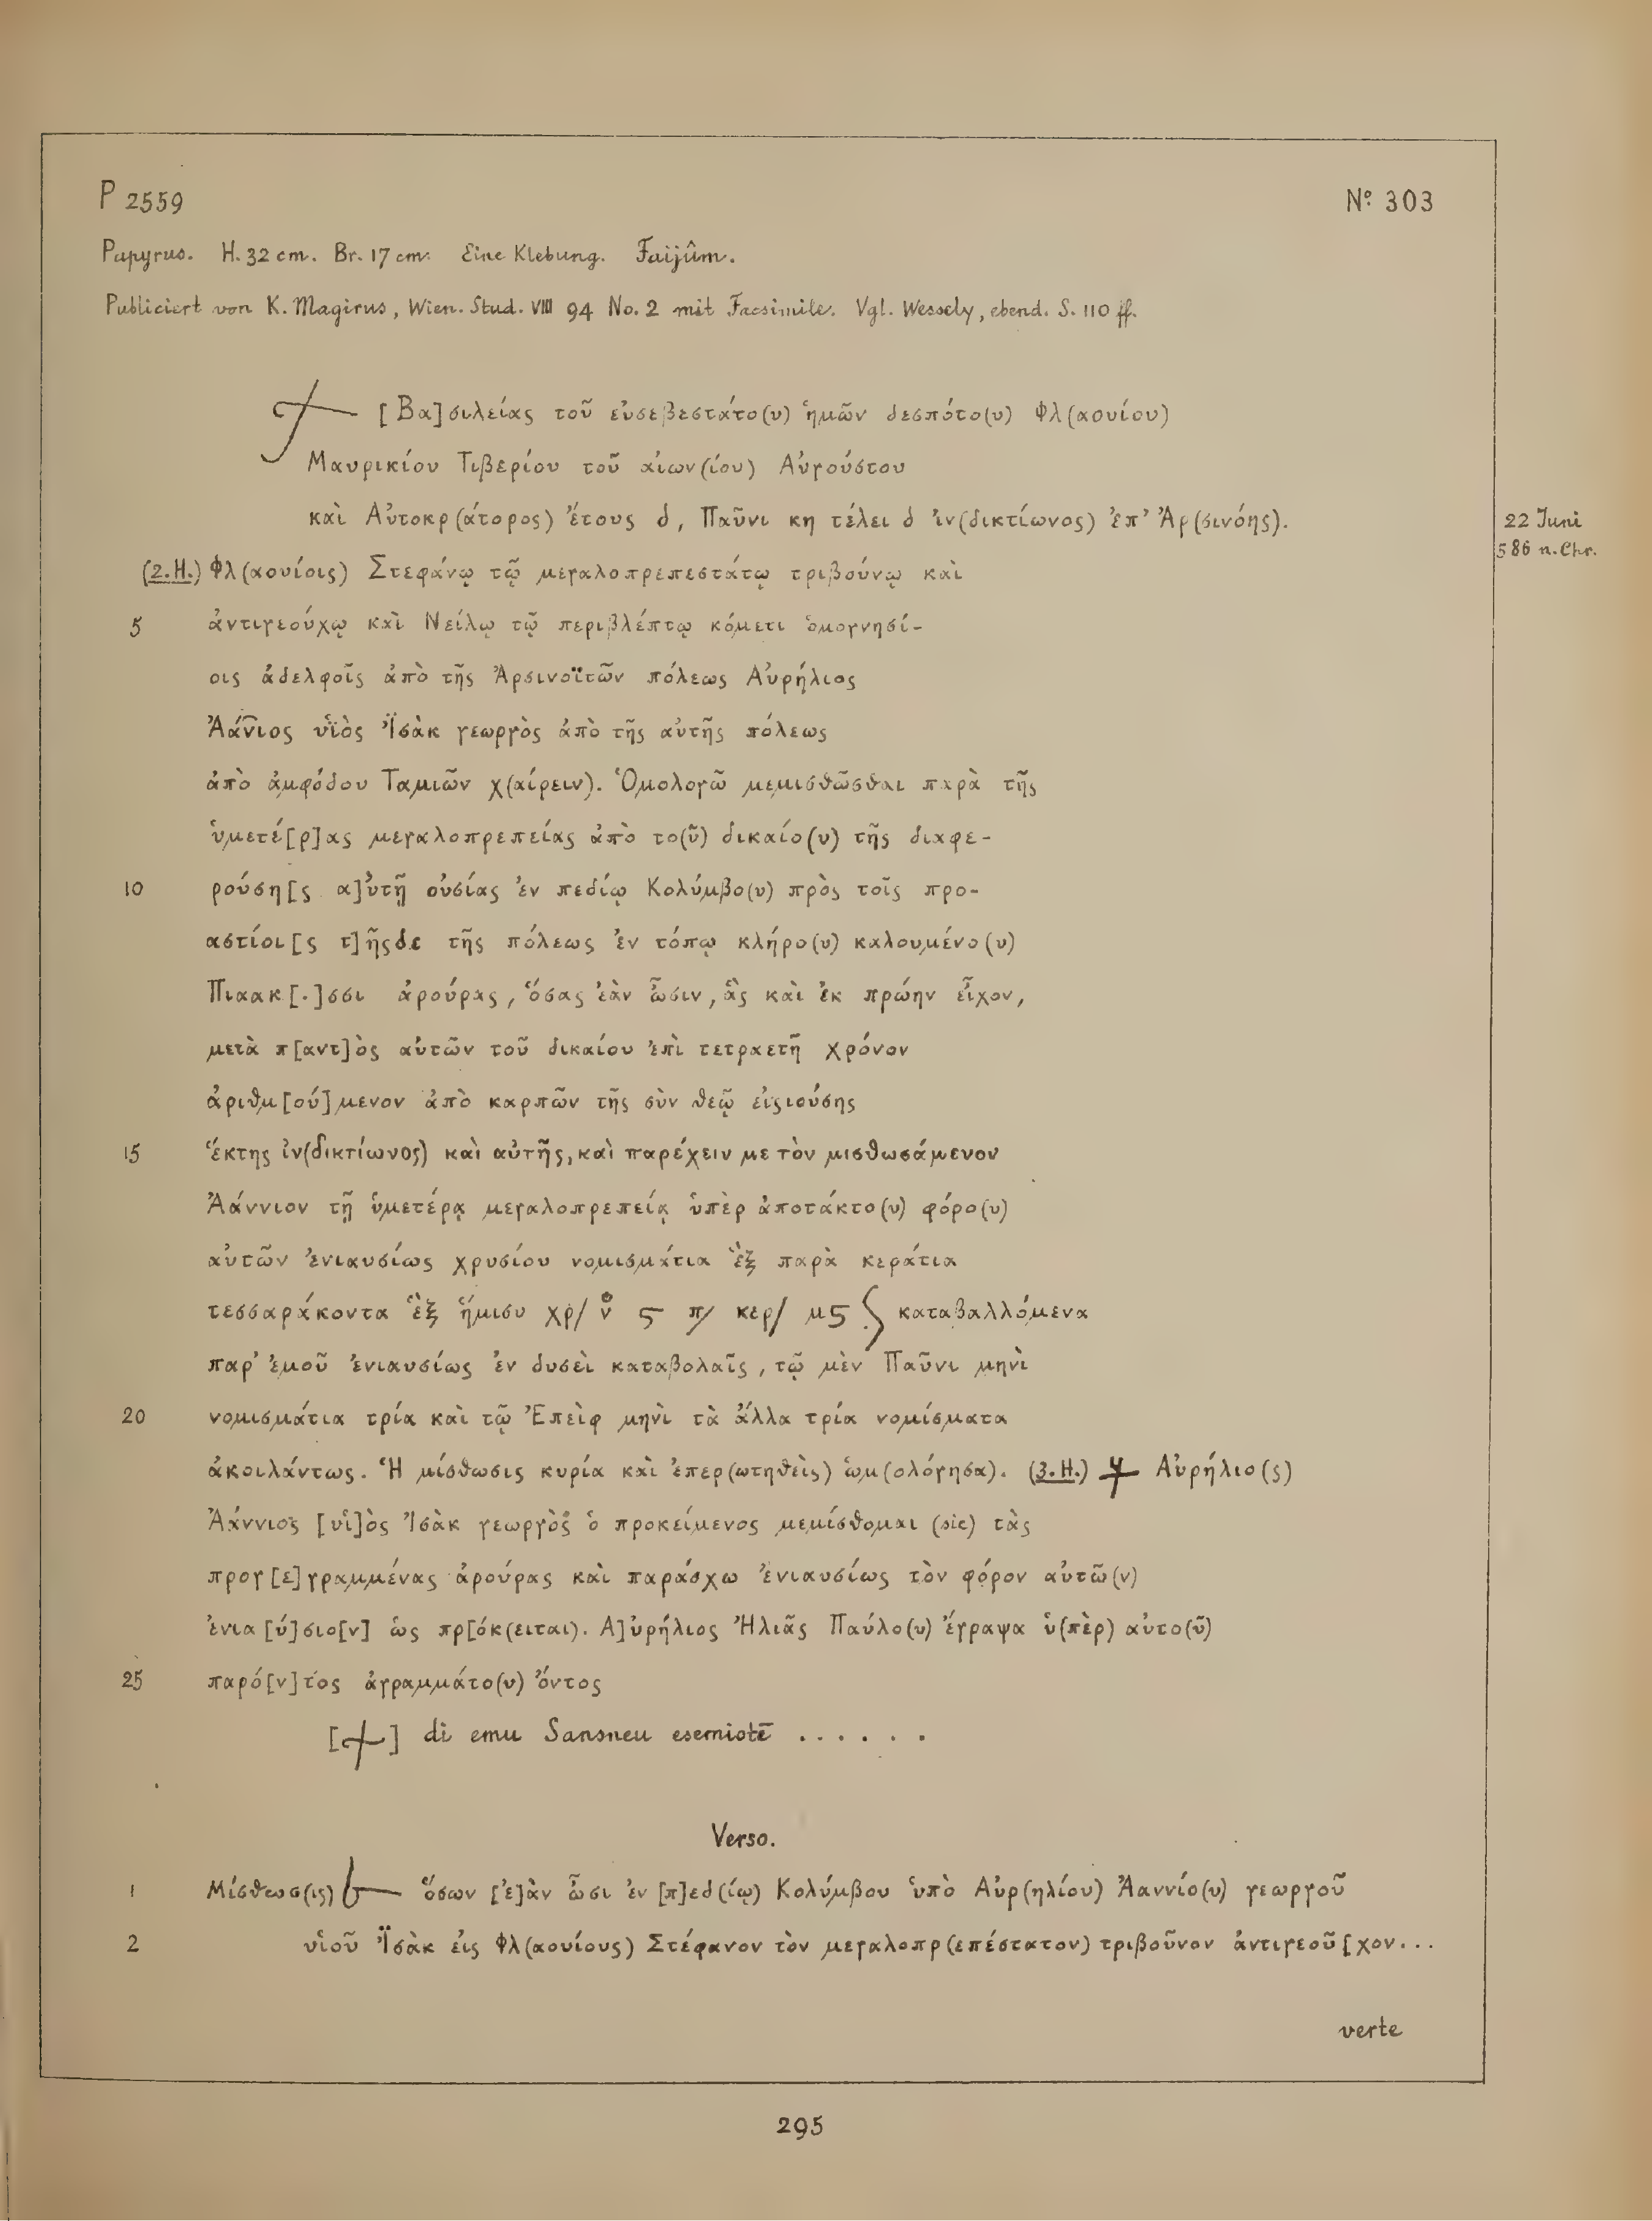 P 2559
No. 303
Papyrus. H. 32 cm. Br. 17 cm. Eine Klebung. Faijûm.
Publiciert von K. Magirus, Wien. Stud. VIII 94 No. 2 mit Facsimile. Vgl. Wessely, ebend. S. 110 ff.
[Βα]σιλείας τοῦ εὐσεβεστάτο(υ) ἡμῶν δεσπότο(υ) Φλ(αουίου)
Μαυρικίου Τιβερίου τοῦ αἰων(ίου) Αὐγούστου
καὶ Αὐτοκρ(άτορος) ἔτους δ, Παῦνι κη τέλει δ ἰν(δικτίωνος) ἐπ' Ἀρ(σινόης).
22 Juni
586 n. Chr.
(2. H.) Φλ(αουίοις) Στεφάνῳ τῷ μεγαλοπρεπεστάτῳ τριβούνῳ καὶ
5 ἀντιγεούχῳ καὶ Νείλῳ τῷ περιβλέπτῳ κόμετι ὁμογνησί-
οις ἀδελφοῖς ἀπὸ τῆς Ἀρσινοϊτῶν πόλεως Αὐρήλιος
Ἀάν̅ιος υἱὸς Ἰ̈σὰκ γεωργὸς ἀπὸ τῆς αὐτῆς πόλεως
ἀπὸ ἀμφόδου Ταμιῶν χ(αίρειν). Ὁμολογῶ μεμισθῶσθαι παρὰ τῆς
ὑμετέ[ρ]ας μεγαλοπρεπείας ἀπὸ το(ῦ) δικαίο(υ) τῆς διαφε-
10 ρούση[ς α]ὐτῇ οὐσίας ἐν πεδίῳ Κολύμβο(υ) πρὸς τοῖς προ-
αστίοι[ς τ]ῆςδε τῆς πόλεως ἐν τόπῳ κλήρο(υ) καλουμένο(υ)
Πιαακ[.]σσι ἀρούρας, ὅσας ἐὰν ὦσιν, ἃς καὶ ἐκ πρώην εἶχον,
μετὰ π[αντ]ὸς αὐτῶν τοῦ δικαίου ἐπὶ τετραετῆ χρόνον
ἀριθμ[ού]μενον ἀπὸ καρπῶν τῆς σὺν θεῷ εἰςιούσης
15 ἕκτης ἰν(δικτίωνος) καὶ αὐτῆς, καὶ παρέχειν με τὸν μισθωσάμενον
Ἀάννιον τῇ ὑμετέρᾳ μεγαλοπρεπείᾳ ὑπὲρ ἀποτάκτο(υ) φόρο(υ)
αὐτῶν ἐνιαυσίως χρυσίου νομισμάτια ἓξ παρὰ κεράτια
τεσσαράκοντα ἓξ ἥμισυ χρ/ ν̊ ϛ π/ κερ/ μϛ ʃ καταβαλλόμενα
παρ' ἐμοῦ ἐνιαυσίως ἐν δυσεὶ καταβολαῖς, τῷ μὲν Παῦνι μηνὶ
20 νομισμάτια τρία καὶ τῷ Ἐπεὶφ μηνὶ τὰ ἄλλα τρία νομίσματα
ἀκοιλάντως. Ἡ μίσθωσις κυρία καὶ ἐπερ(ωτηθεὶς) ὡμ(ολόγησα). (3. H.) Αὐρήλιο(ς)
Ἀάννιος [υἱ]ὸς Ἰσὰκ γεωργὸς ὁ προκείμενος μεμίσθομαι (sic) τὰς
προγ[ε]γραμμένας ἀρούρας καὶ παράσχω ἐνιαυσίως τὸν φόρον αὐτῶ(ν)
ἐνια[ύ]σιο[ν] ὡς πρ[όκ(ειται). Α]ὐρήλιος Ἠλιᾶς Παύλο(υ) ἔγραψα ὑ(πὲρ) αὐτο(ῦ)
25 παρό[ν]τος ἀγραμμάτο(υ) ὄντος
[+] di emu Sansneu esemiotē . . . . . .
Verso.
1 Μίσθωσ(ις) ὅσων [ἐ]ὰν ὦσι ἐν [π]εδ(ίῳ) Κολύμβου ὑπὸ Αὐρ(ηλίου) Ἀαννίο(υ) γεωργοῦ
2 υἱοῦ Ἰ̈σὰκ εἰς Φλ(αουίους) Στέφανον τὸν μεγαλοπρ(επέστατον) τριβοῦνον ἀντιγεοῦ[χον...
verte
295